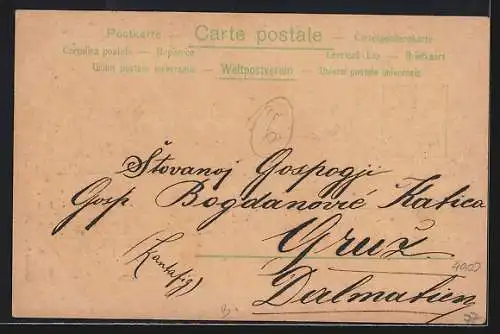 Postkarte — Carte postale — Correspondenzkarte
Cartolina postale — Dopisnice — Levelező-Lap — Briefkaart
Union postale universelle — Weltpostverein — Unione postale universale
6.
Štovanoj Gospogji
Gosp. Bogdanović Katica
Gruž
4000
Dalmatien